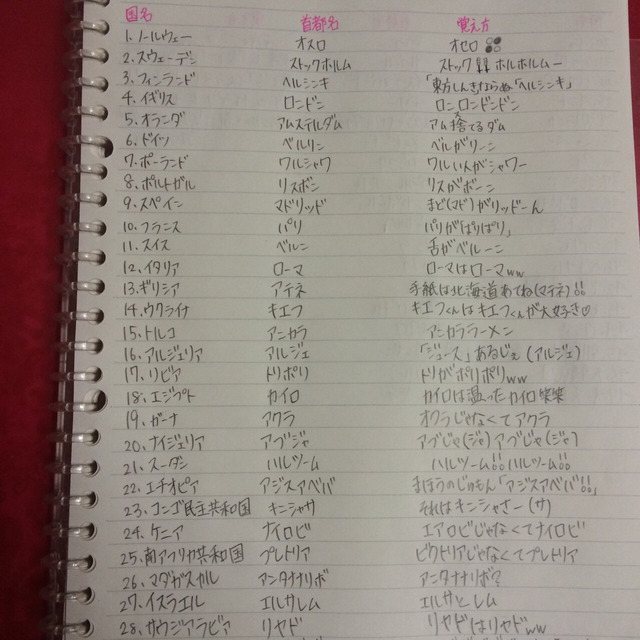 国名 首都名 覚え方
1. ノールウェー オスロ オセロ
2. スウェーデン ストックホルム ストック !! ホルホルムー
3. フィンランド ヘルシンキ 「東方しんきならぬ「ヘルシンキ」
4. イギリス ロンドン ロンロンドンドン
5. オランダ アムステルダム アム捨てるダム
6. ドイツ ベルリン ベルがリーン
7. ポーランド ワルシャワ ワルい人がシャワー
8. ポルトガル リスボン リスがボーン
9. スペイン マドリッド まど(マド)がリッドーん
10. フランス パリ パリがぱりぱり」
11. スイス ベルン 舌がベルーン
12. イタリア ローマ ローマはローマww
13. ギリシア アテネ 手紙は北海道あてね(マテネ)!!
14. ウクライナ キエフ キエフくんはキエフくんが大好き♡
15. トルコ アンカラ アンカララーメン
16. アルジェリア アルジェ 「ジュース」あるじぇ(アルジェ)
17. リビア トリポリ トリがポリポリww
18. エジプト カイロ カイロは温ったカイロ笑笑
19. ガーナ アクラ オクラじゃなくてアクラ
20. ナイジェリア アブジャ アブじゃ(ジャ)アブじゃ(ジャ)
21. スーダン ハルツーム ハルツーム!!ハルツーム!!
22. エチオピア アジスアベバ まほうのじゅもん「アジスアベバ!!」
23. コンゴ民主共和国 キンシャサ それはキンシャさー(サ)
24. ケニア ナイロビ エアロビじゃなくてナイロビ
25. 南アフリカ共和国 プレトリア ビクトリアじゃなくてプレトリア
26. マダガスカル アンタナナリボ アンタナナリボ?
27. イスラエル エルサレム エルサとレム
28. サウジアラビア リヤド リヤドはリヤドww